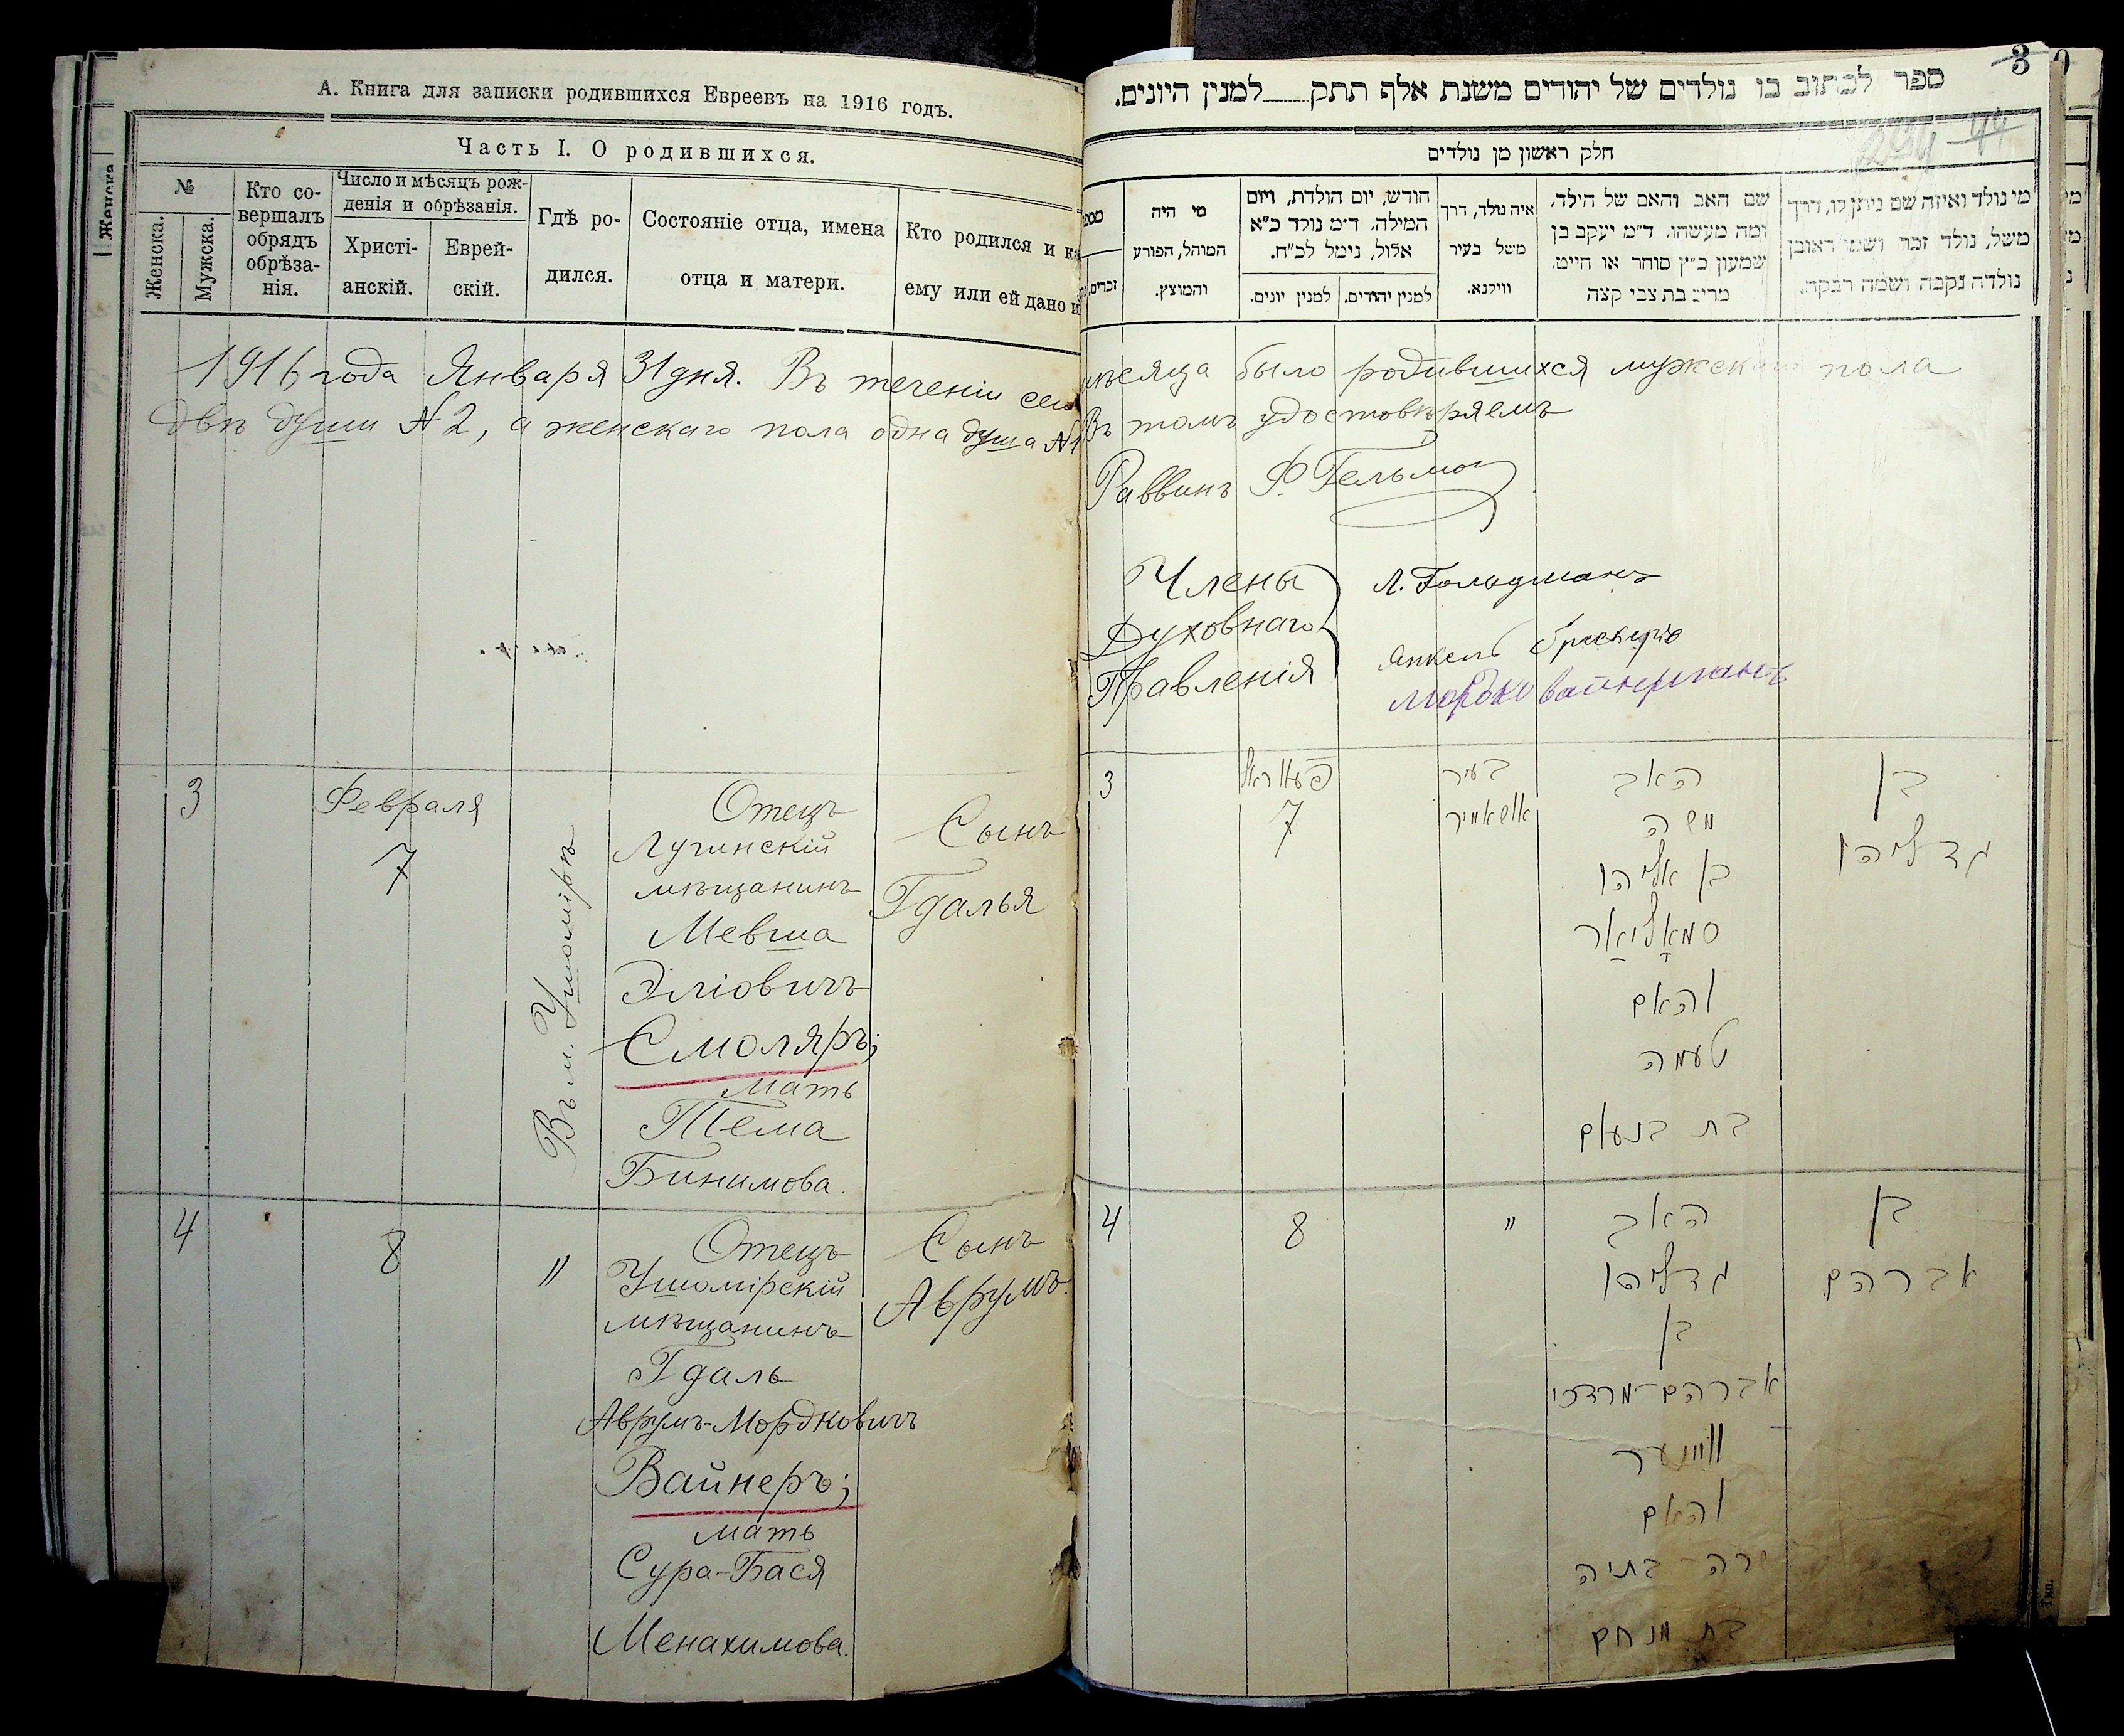 А. Книга для записки родившихся Евреевъ на 1916 годъ.
Часть I. О родившихся.
№
Женска.
Мужска.
Кто со-
вершалъ
обрядъ
обрѣза-
нія.
Число и мѣсяцъ рож-
денія и обрѣзанія.
Христі-
анскій.
Еврей-
скій.
Гдѣ ро-
дился.
Состояніе отца, имена
отца и матери.
Кто родился и ка
ему или ей дано и
1916 года Января 31 дня. Въ теченіи сего
двѣ души №2, а женскаго пола одна душа №1
3
Февраля
7
Въ м. Ушомірѣ
Отецъ
Лугинскій
мѣщанинъ
Мевша
Эліовичъ
Смоляръ;
мать
Тема
Бинимова.
Сынъ
Гдалья
4
8
"
Отецъ
Ушомірскій
мѣщанинъ
Гдаль
Аврумъ-Мордковичъ
Вайнеръ;
мать
Сура-Бася
Менахимова.
Сынъ
Аврумъ.
3
ספר לכתוב בו נולדים של יהודים משנת אלף תתק____למנין היונים.
44
חלק ראשון מן נולדים
מי נולד ואיזה שם ניתן לו, דרך
משל, נולד זכר ושמו ראובן
נולדה נקבה ושמה רבקה.
שם האב והאם של הילד,
ומה מעשהו. ד"מ יעקב בן
שמעון כ"ץ סוחר או חייט,
מרים בת צבי קצה
איה נולד, דרך
משל בעיר
ווילנא.
חודש, יום הולדת, ויום
המילה. ד"מ נולד כ"א
אלול, נימל לכ"ח.
למנין יהודים.
למנין יונים.
מי היה
המוהל, הפורע
והמוצץ.
מספ
זכרים.
мѣсяца было родившихся мужскаго пола
Въ томъ удостовѣряемъ
Раввинъ Ф. Гельман
Члены
Духовнаго
Правленія
Л. Гольдманъ
Янкель
Мордко Вайнерманъ
3
7
בעיר
אושאמיר
האב
משה
בן אליהו
סמאָליאַר
והאם
טעמה
בת בנעום
בן
גדליהו
4
8
"
האב
גדליהו
בן
אברהם-מרדכי
ווײנער
והאם
שרה-בתיה
בת מנחם
בן
אברהם